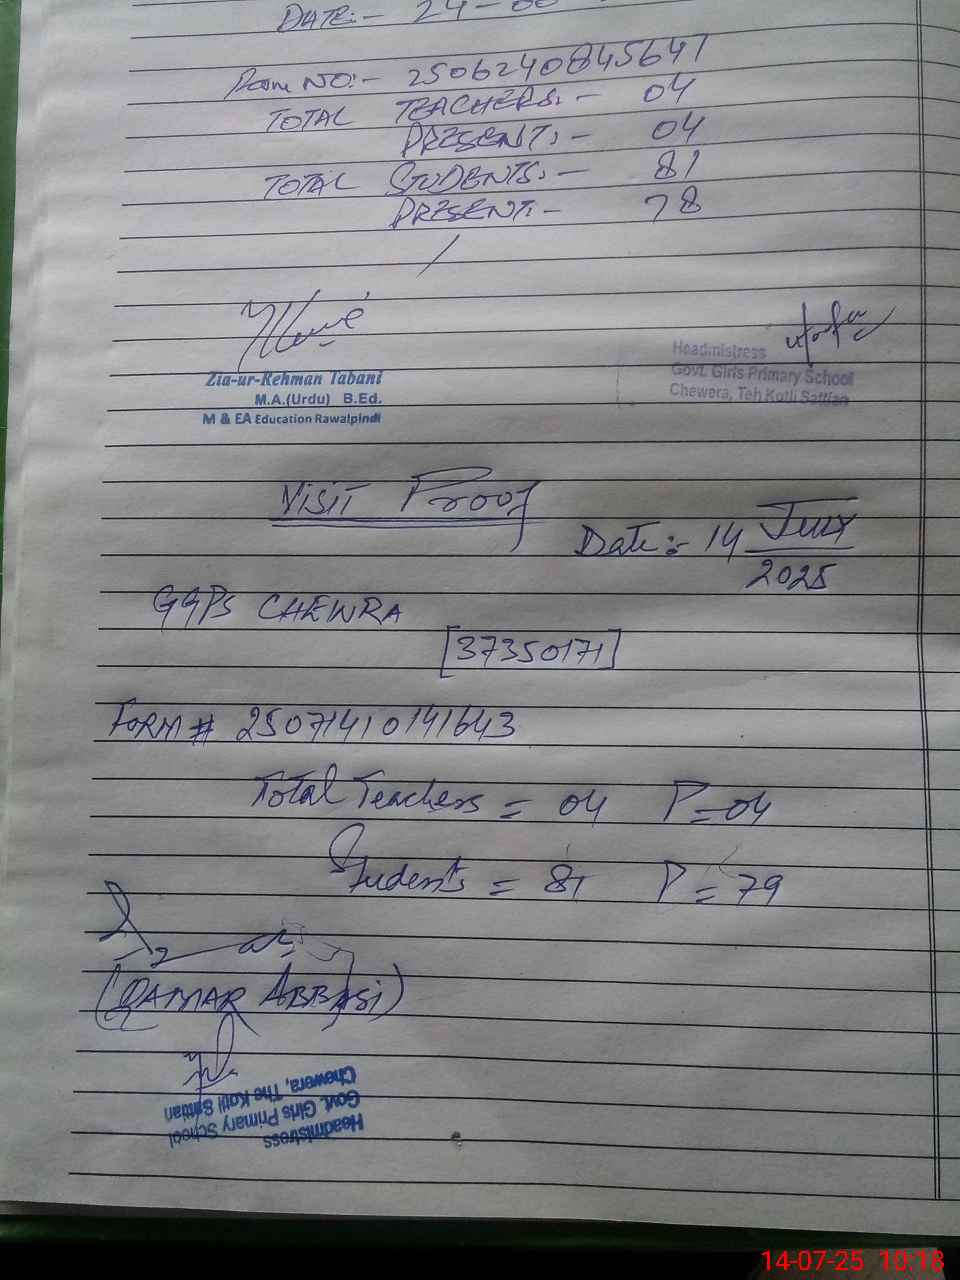 DATE:- 24-06
Form NO:- 2506240845647
TOTAL TEACHERS:- 04
PRESENT:- 04
TOTAL STUDENTS:- 81
PRESENT:- 78
Zia-ur-Rehman Tabani
M.A.(Urdu) B.Ed.
M & EA Education Rawalpindi
Headmistress
Govt. Girls Primary School
Chewera, Teh Kotli Sattian
Visit Proof
Date:- 14 July
2025
GGPS CHEWRA
[37350171]
FORM # 25071410141643
Total Teachers = 04 P=04
Students = 81 P=79
(QAMAR ABBASI)
Headmistress
Govt. Girls Primary School
Chewera, The Kotli Sattian
14-07-25 10:18